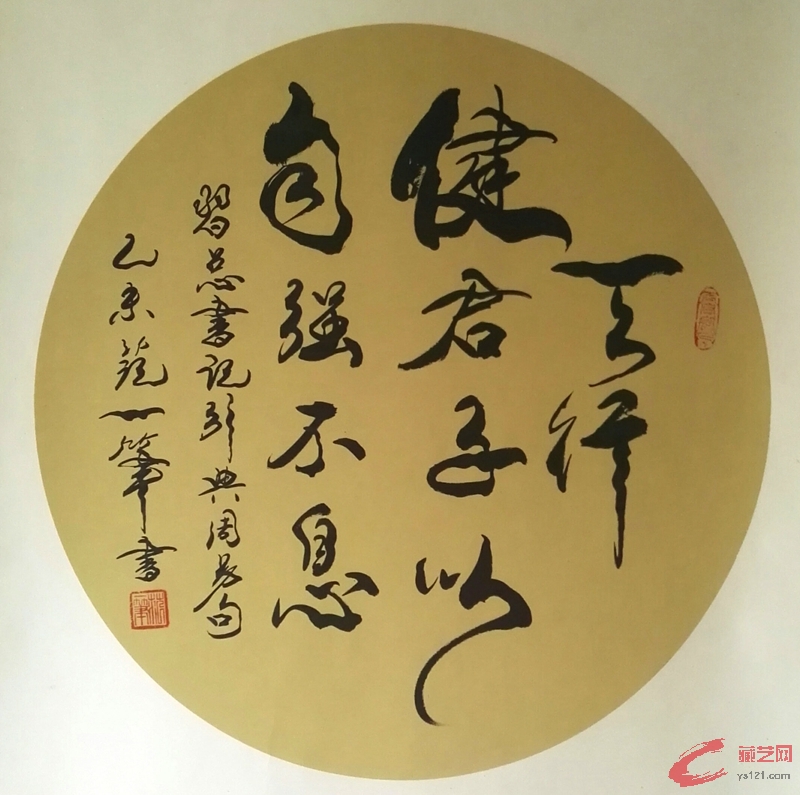 天行
健君子以
自强不息
習总書记引典周易句
乙未
書
藏艺网
ys121.com